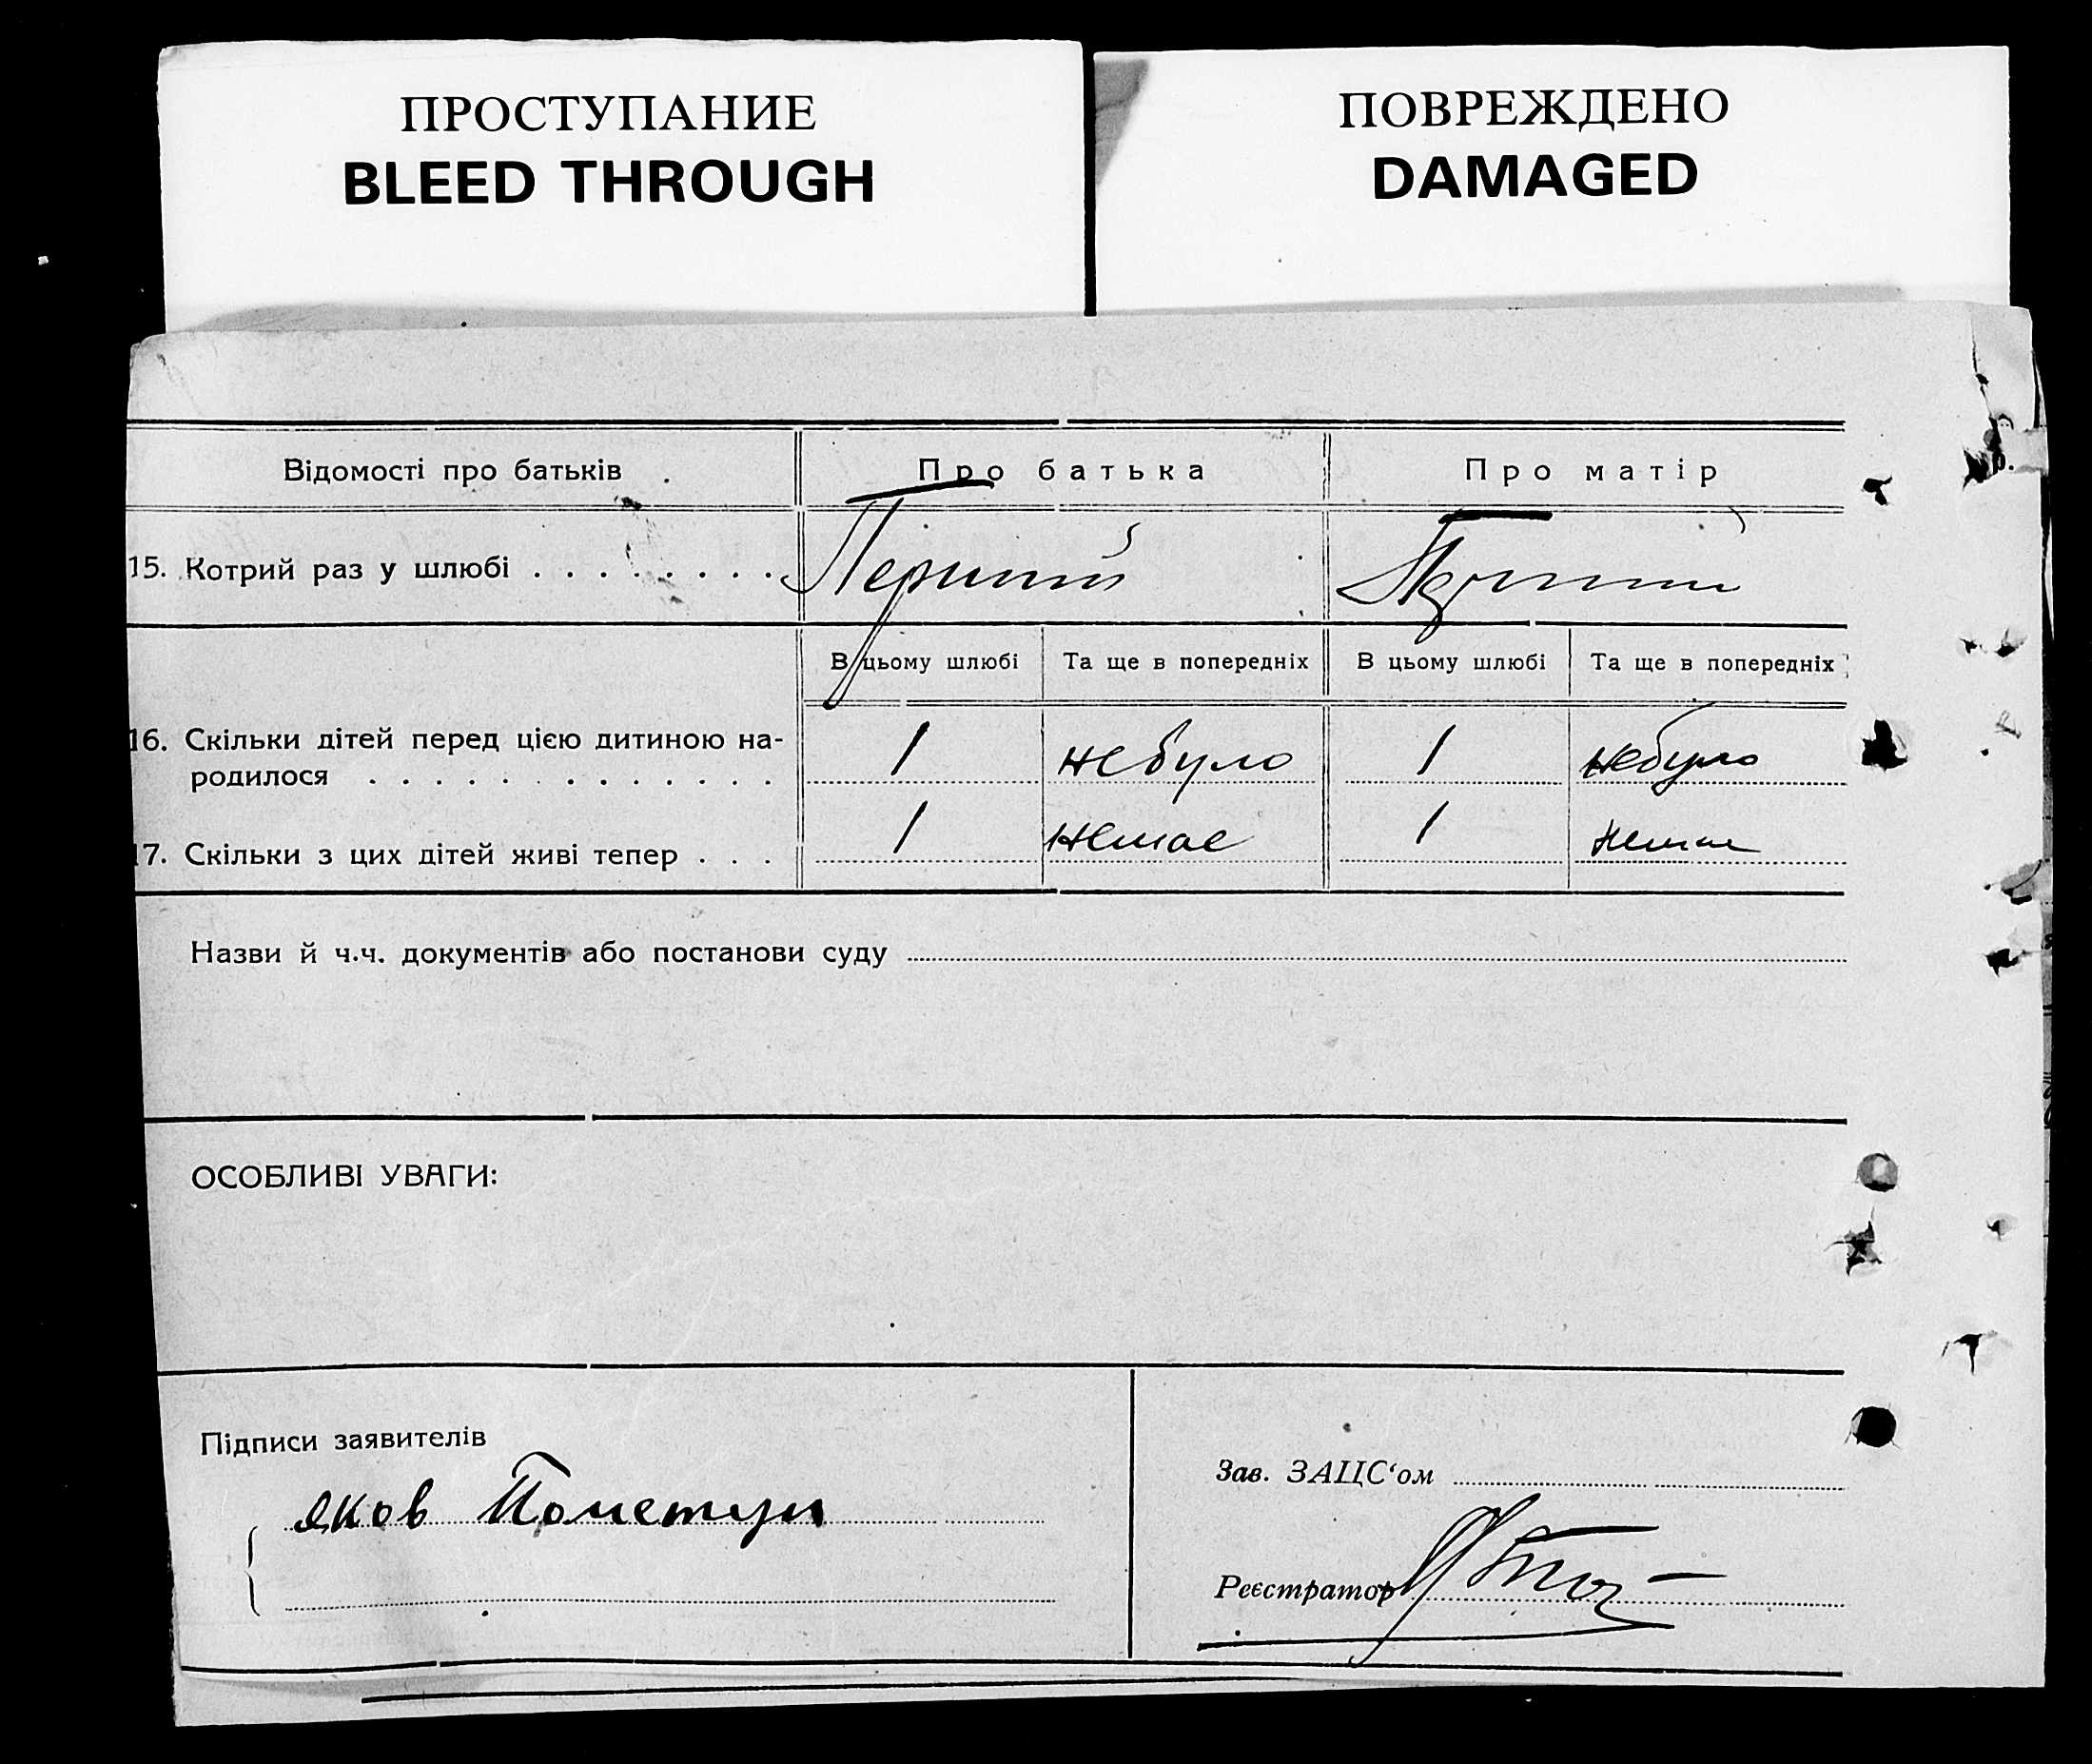 ПРОСТУПАНИЕ
BLEED THROUGH
ПОВРЕЖДЕНО
DAMAGED
Відомості про батьків
Про батька
Про матір
15. Котрий раз у шлюбі
Перший
Перший
В цьому шлюбі
Та ще в попередніх
В цьому шлюбі
Та ще в попередніх
16. Скільки дітей перед цією дитиною на-
родилося
1
небуло
1
небуло
17. Скільки з цих дітей живі тепер
1
немає
1
немає
Назви й ч.ч. документів або постанови суду
ОСОБЛИВІ УВАГИ:
Підписи заявителів
Яков Пометун
Зав. ЗАЦС‘ом
Реєстратор